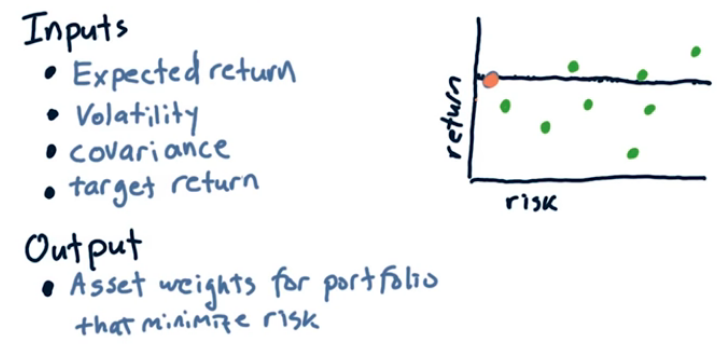 Inputs
• Expected return
• Volatility
• covariance
• target return
return
risk
Output
• Asset weights for portfolio
that minimize risk